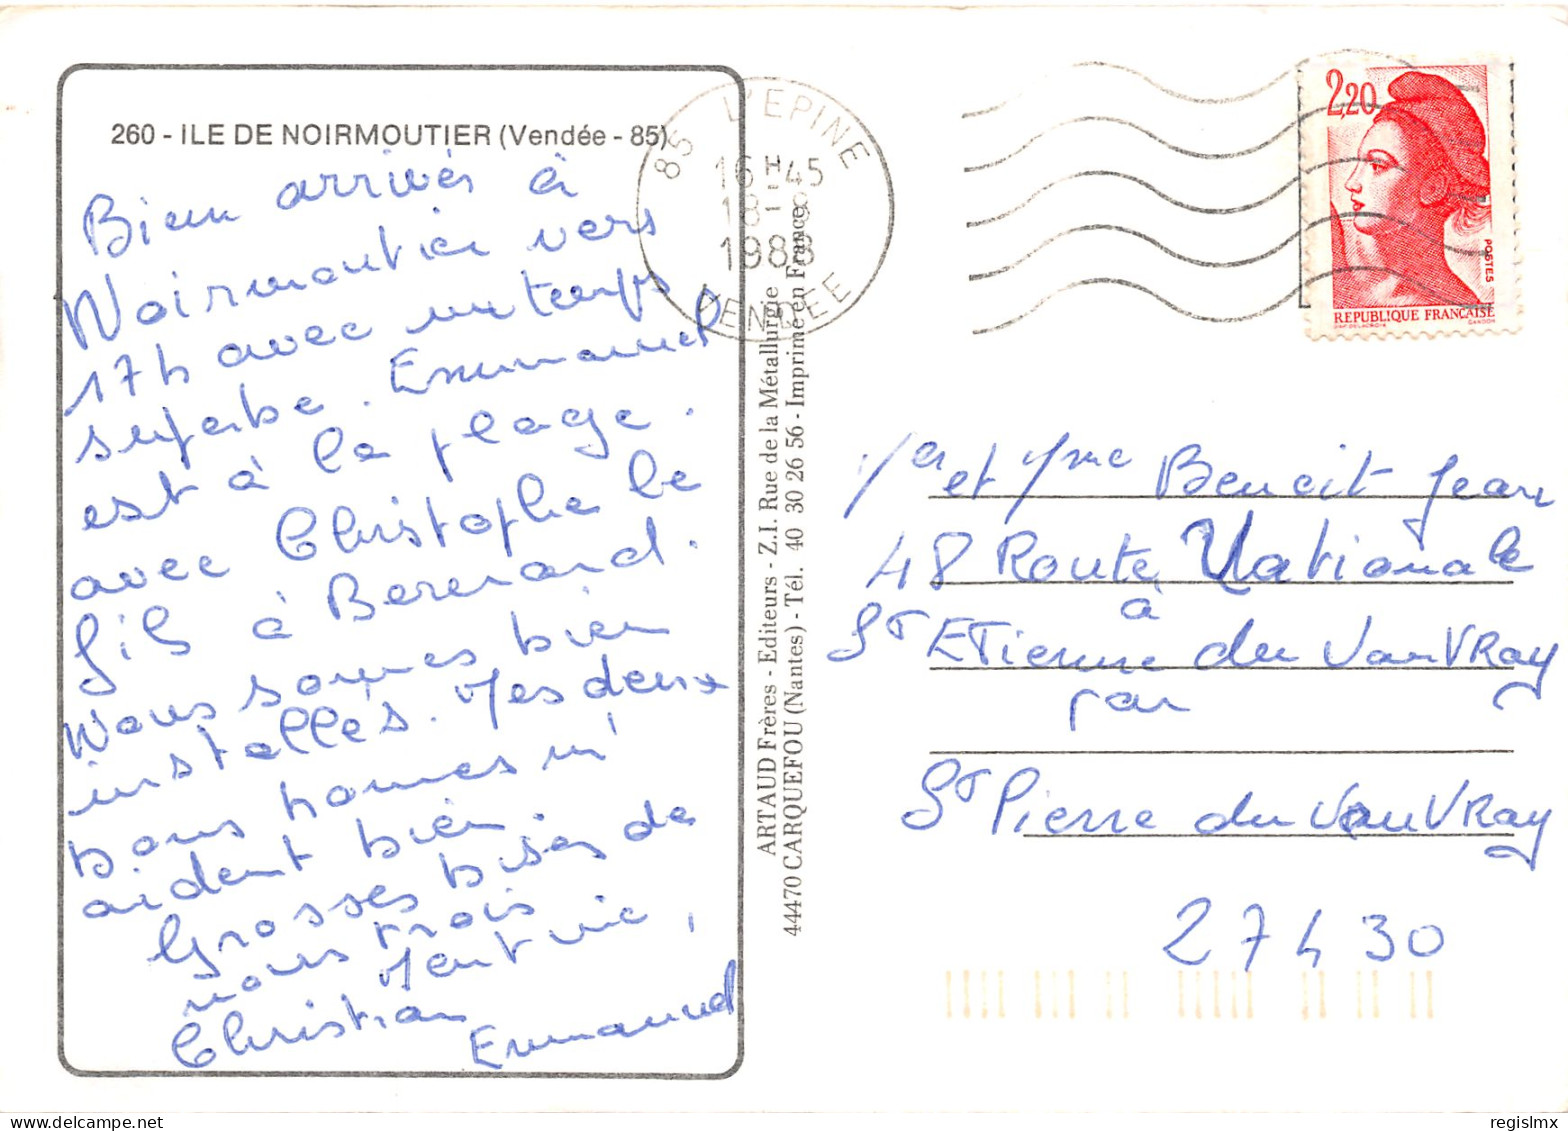 260 - ILE DE NOIRMOUTIER (Vendée - 85)
Bien arrivés à
Noirmoutier vers
17h avec un temps
superbe. Emmanuel
est à la plage.
avec Christophe le
fils à Bernard.
Nous somes bien
installés. Mes deux
bons homes m'
aident bien.
Grosses bises de
nous trois
Christian
Emmanuel
85 L'EPINE
16H45
18-
1988
VENDEE
ARTAUD Frères - Editeurs - Z.I. Rue de la Métallurgie
44470 CARQUEFOU (Nantes) - Tél. 40 30 26 56 - Imprimé en France
2,20
POSTES
REPUBLIQUE FRANÇAISE
DAP. DELACROIX GANDON
Mr et Mme Benoit Jean
48 Route Nationale
à
St ETienne du VauVRay
par
St Pierre du VauVRay
27430
regislmx